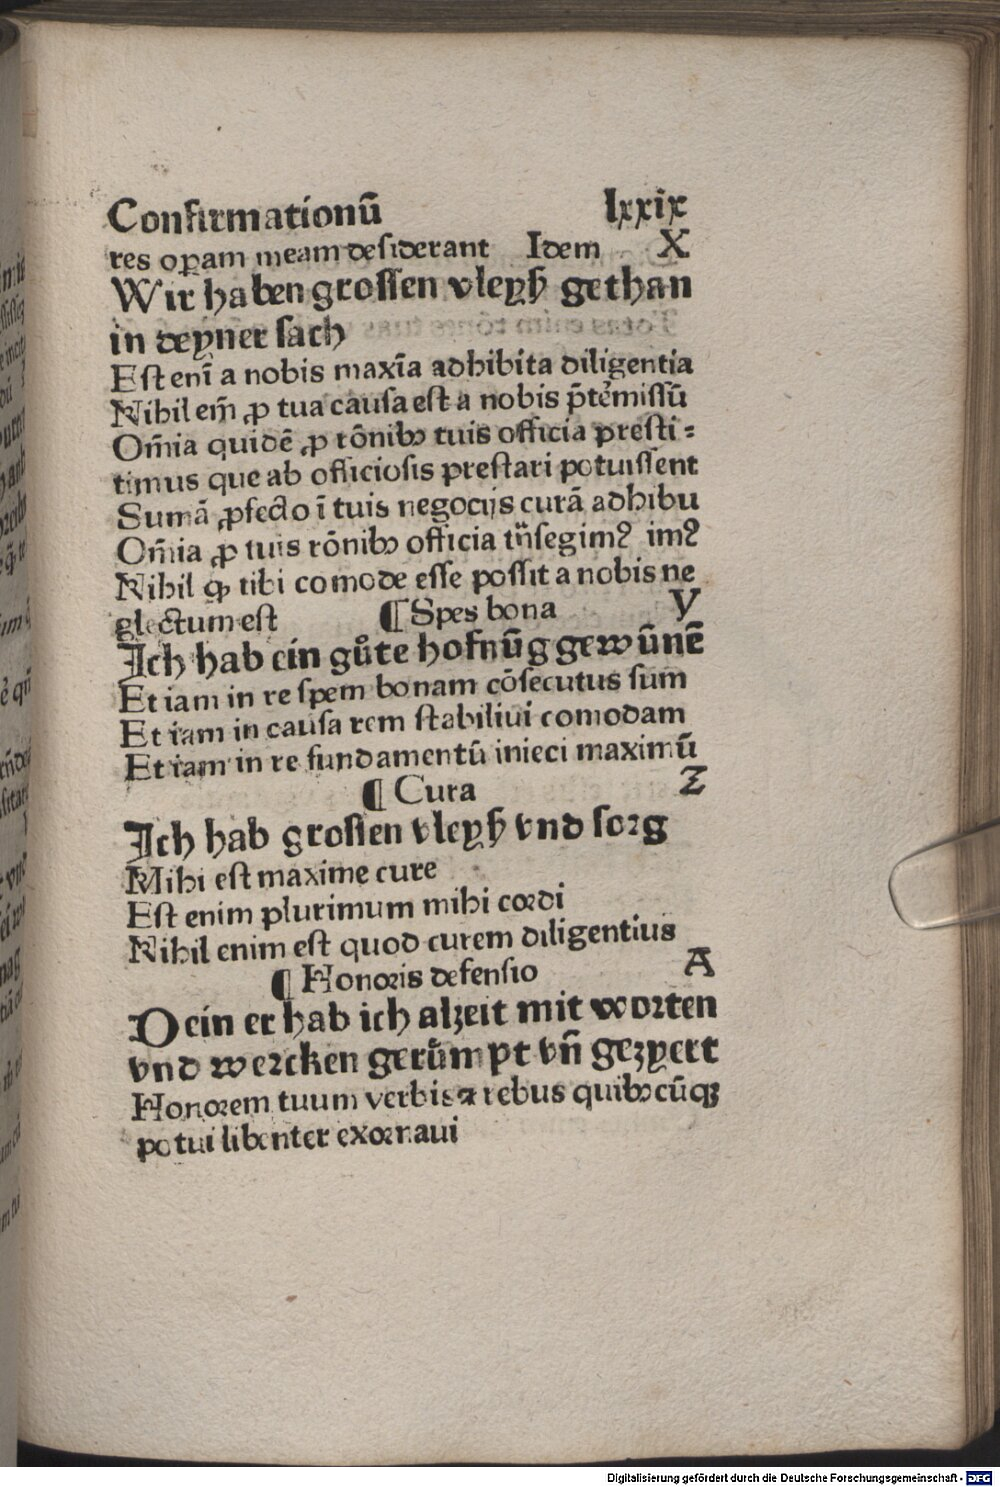 Confirmationū lxxix
res oꝑam meam desiderant Idem X
Wir haben grossen vleyß gethan
in deyner sach
Est enī a nobis maxīa adhibita diligentia
Nihil em̄ ꝓ tua causa est a nobis p̄tẽmissū
Om̄ia quidē ꝓ rōnibꝫ tuis officia presti⸗
timus que ab officiosis prestari potuissent
Sumā ꝓfecto ī tuis negocijs curā adhibu
Om̄ia ꝓ tuis rōnibꝫ officia
Nihil ꝙ tibi comode esse possit a nobis ne
glectum est ¶ Spes bona Y
Ich hab ein gůte hofnūg gewūnē
Et iam in re spem bonam cōsecutus sum
Et iam in causa rem stabiliui comodam
Et iam in re fundamentū inieci maximū
¶ Cura Z
Ich hab grossen vleyß vnd sorg
Mihi est maxime cure
Est enim plurimum mihi cordi
Nihil enim est quod curem diligentius
¶ Honoris defensio A
Dein er hab ich alzeit mit worten
vnd wercken gerůmpt vn̄ gezyert
Honorem tuum verbis ⁊ rebus quibꝫcūqꝫ
potui libenter exornaui
Digitalisierung gefördert durch die Deutsche Forschungsgemeinschaft - DFG